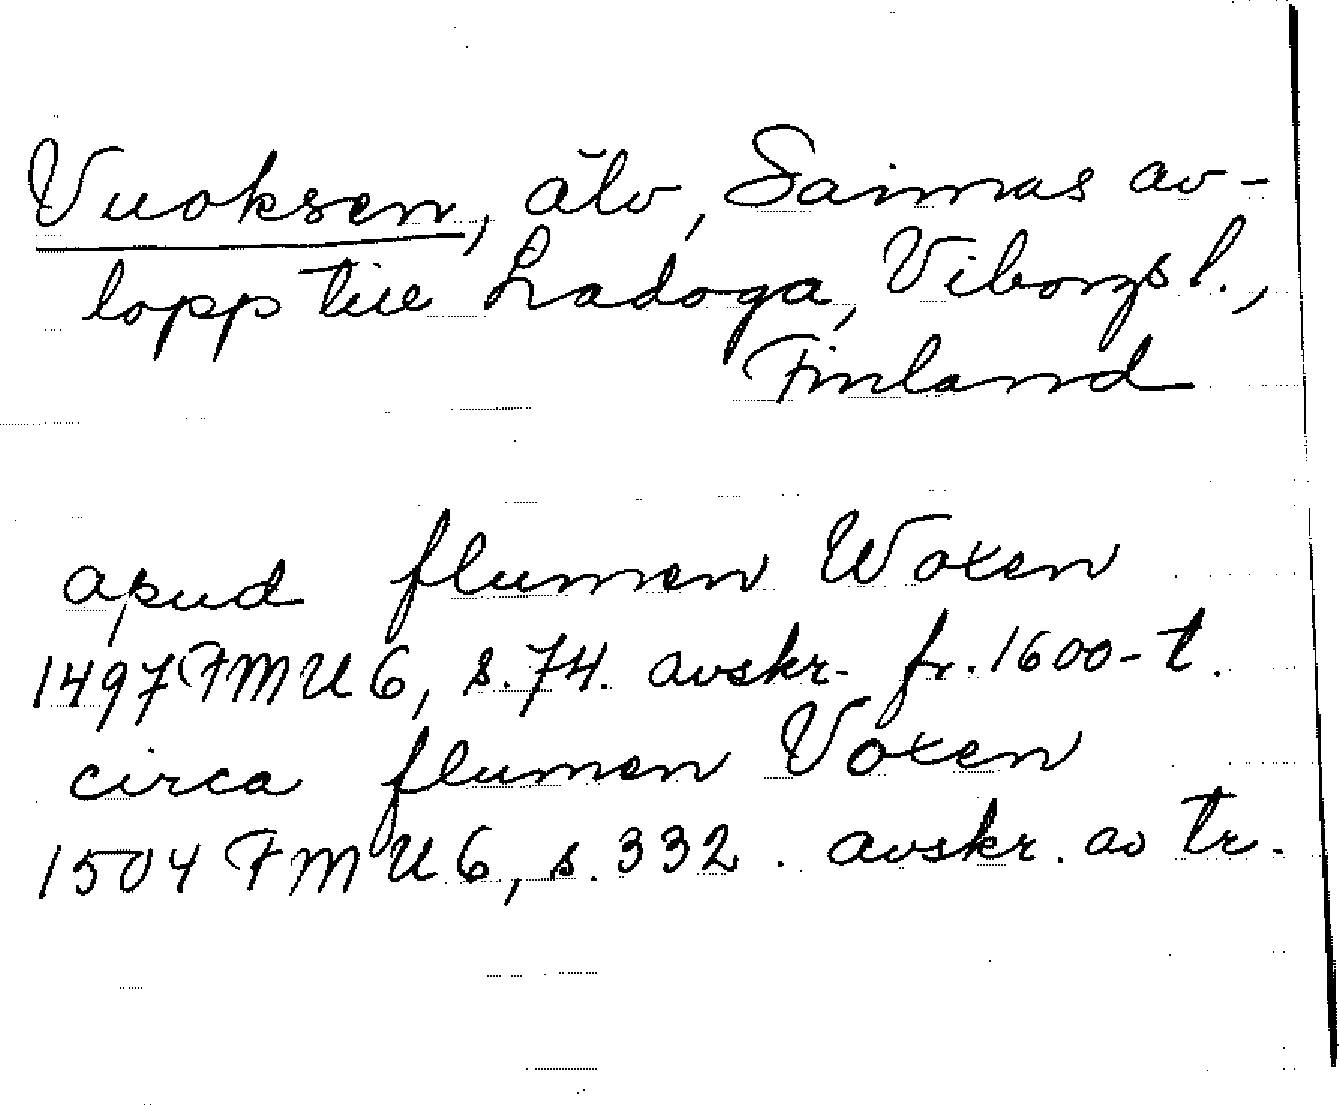 Vuoksen, älv, Saimas av-
lopp till Ladoga, Viborgs l.,
Finland
apud flumen Woxen
1497 FMU 6, s. 74. avskr. fr. 1600-t.
circa flumen Voxen
1504 FMU 6, s. 332. avskr. av tr.